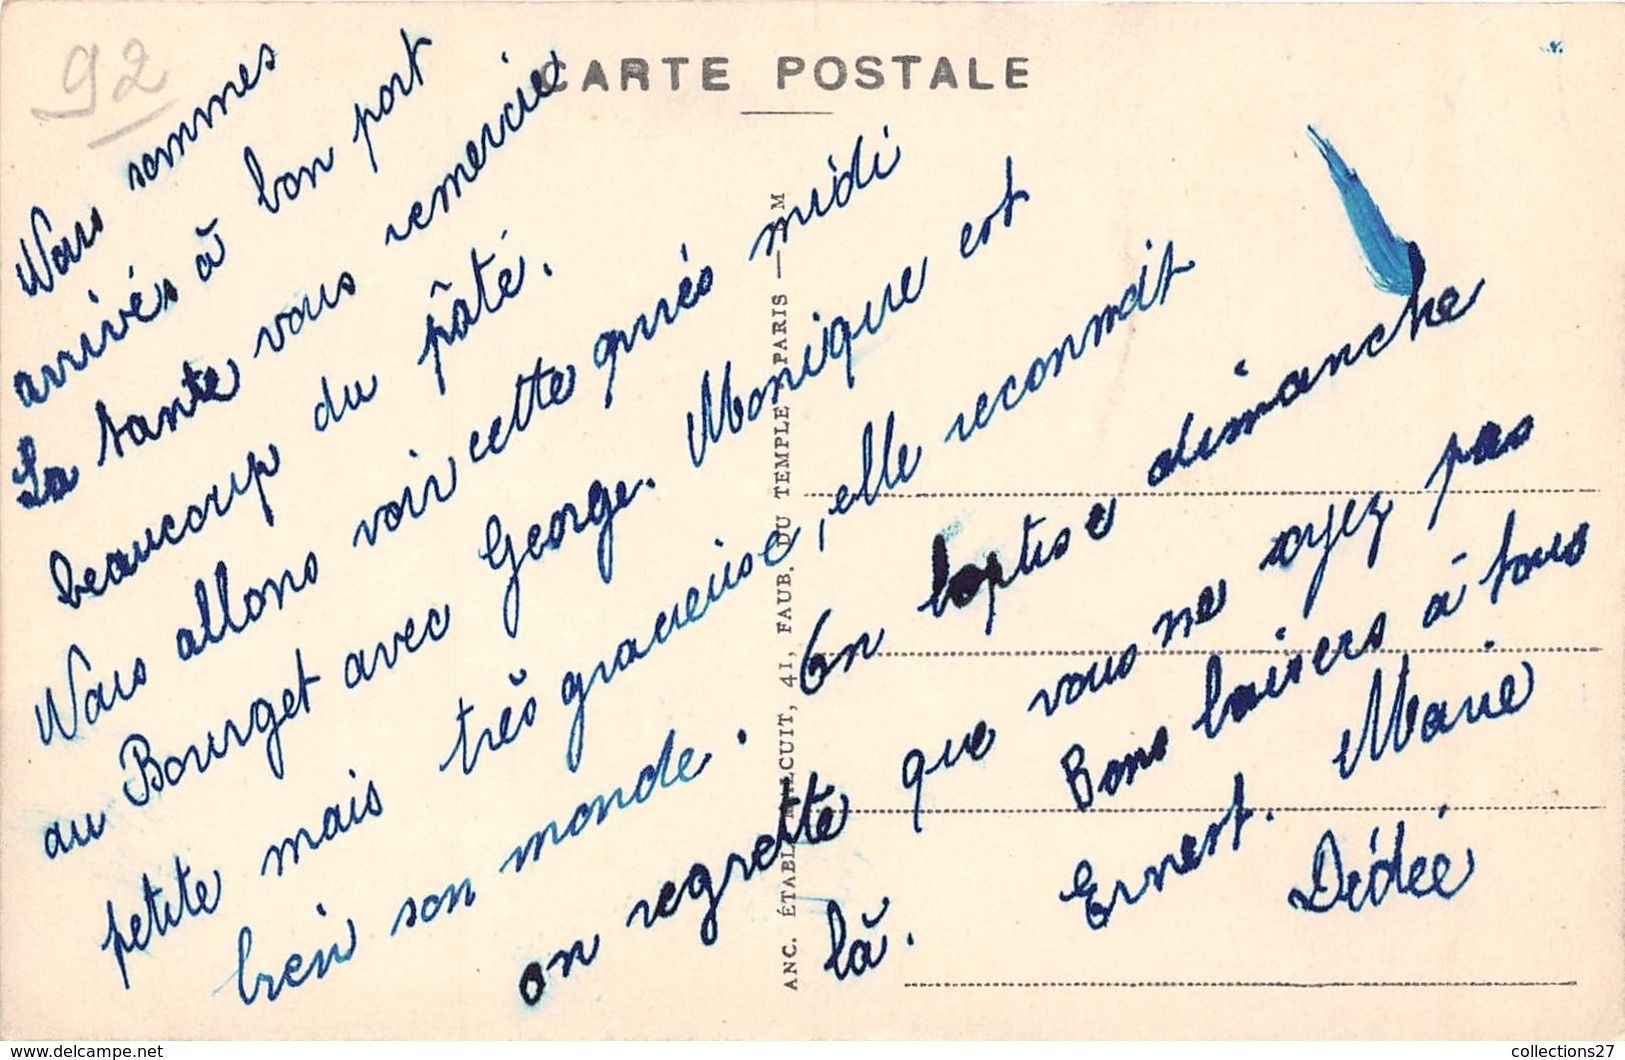 92
CARTE POSTALE
Nous sommes
arrivés à bon port
La tante vous remercie
beaucoup du pâté.
Nous allons voir cette après midi
au Bourget avec George. Monique est
petite mais très gracieuse, elle reconnait
bien son monde. On baptise dimanche
on regrette que vous ne soyez pas
là. Bons baisers à tous
Ernest. Marie
Dédée
ANC. ÉTABL. MALCUIT, 41, FAUB. DU TEMPLE PARIS — M
collections27